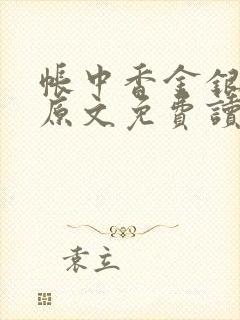 帳中香金銀
原文免費讀
袁立